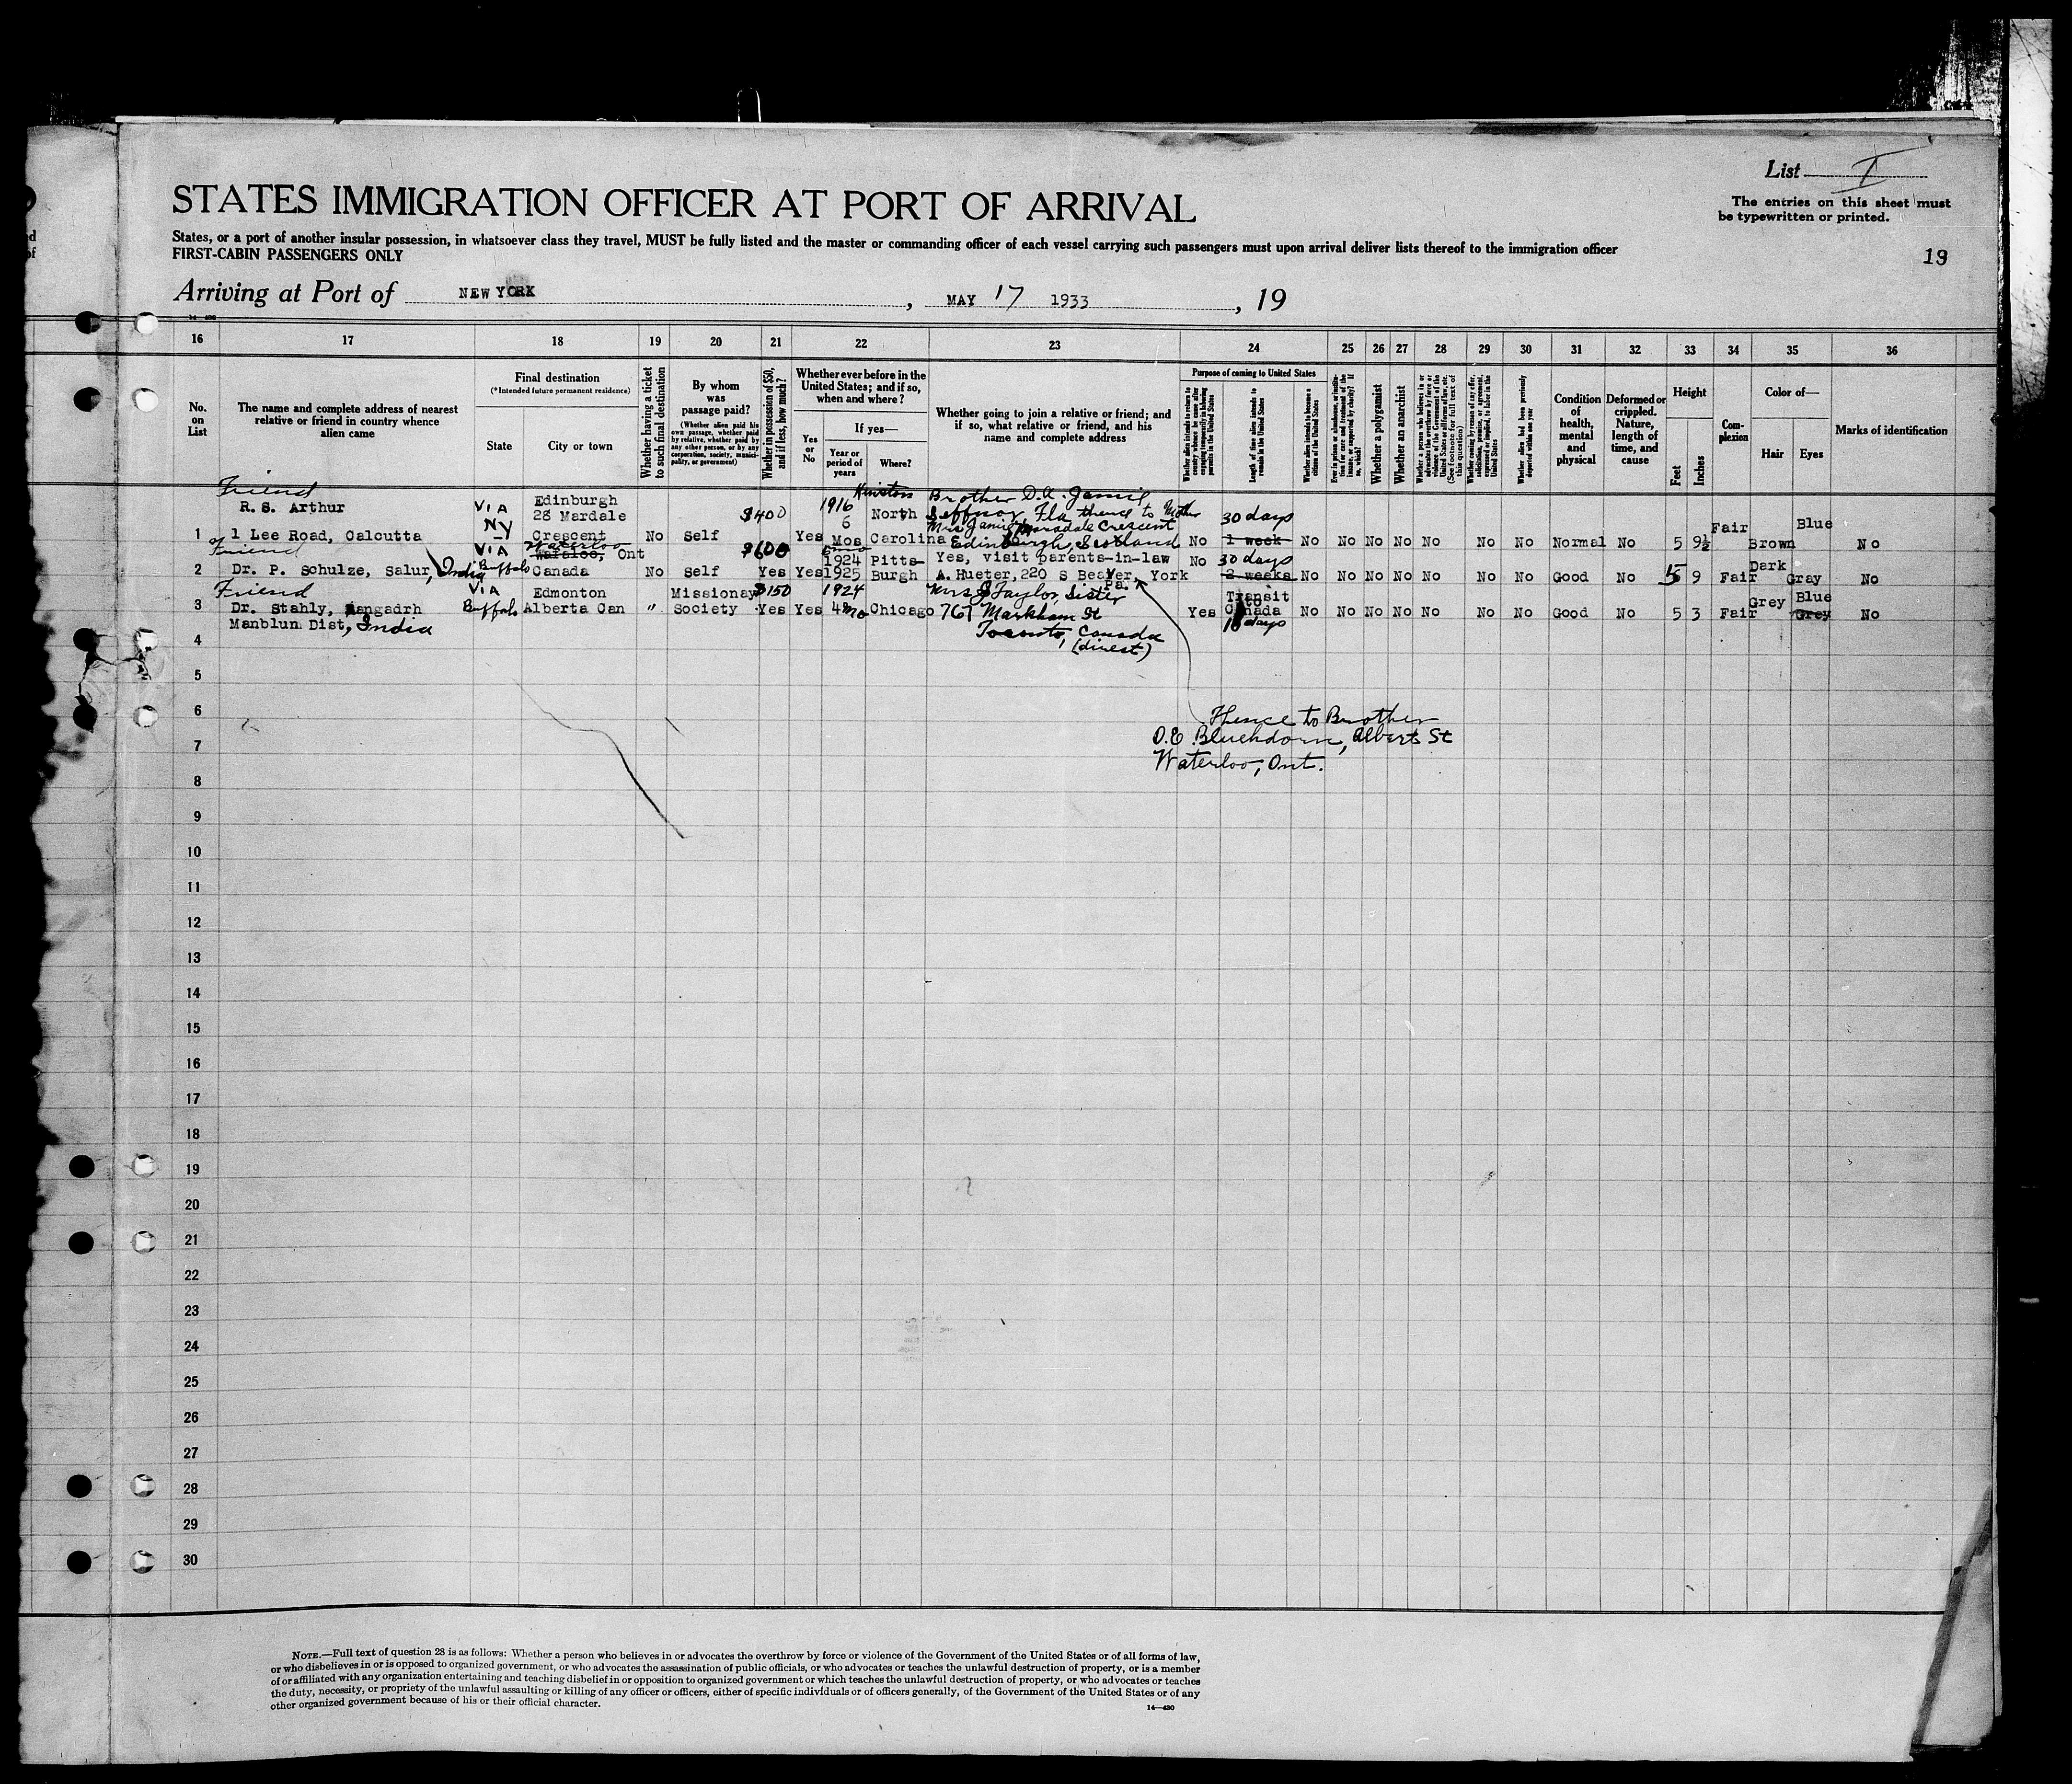 List I
STATES IMMIGRATION OFFICER AT PORT OF ARRIVAL
The entries on this sheet must
be typewritten or printed.
States, or a port of another insular possession, in whatsoever class they travel, MUST be fully listed and the master or commanding officer of each vessel carrying such passengers must upon arrival deliver lists thereof to the immigration officer
FIRST-CABIN PASSENGERS ONLY
19
Arriving at Port of NEW YORK, MAY 17 1933, 19
16 17 18 19 20 21 22 23 24 25 26 27 28 29 30 31 32 33 34 35 36
No. on List
The name and complete address of nearest relative or friend in country whence alien came
Final destination
(*Intended future permanent residence)
State
City or town
Whether having a ticket to such final destination
By whom was passage paid?
(Whether alien paid his own passage, whether paid by relative, whether paid by any other person, or by any corporation, society, municipality, or government)
Whether in possession of $50, and if less, how much?
Whether ever before in the United States; and if so, when and where?
Yes or No
If yes—
Year or period of years
Where?
Whether going to join a relative or friend; and if so, what relative or friend, and his name and complete address
Purpose of coming to United States
Whether alien intends to return to country whence he came after engaging temporarily in laboring pursuits in the United States
Length of time alien intends to remain in the United States
Whether alien intends to become a citizen of the United States
Ever in prison or almshouse, or institution for care and treatment of the insane, or supported by charity? If so, which?
Whether a polygamist
Whether an anarchist
Whether a person who believes in or advocates the overthrow by force or violence of the Government of the United States or all forms of law, etc. (See footnote for full text of this question)
Whether coming by reason of any offer, solicitation, promise, or agreement, expressed or implied, to labor in the United States
Whether alien had been previously deported within one year
Condition of health, mental and physical
Deformed or crippled. Nature, length of time, and cause
Height
Feet
Inches
Complexion
Color of—
Hair
Eyes
Marks of identification
Friend
R. S. Arthur VIA NY Edinburgh 28 Mardale $400 1916 6 North Brother D.A.
1 1 Lee Road, Calcutta Crescent No Self Yes Mos Carolina Edinburgh, Scotland No 30 days 1 week No No No No No No No Normal No 5 9½ Fair Brown Blue No
Friend VIA Buffalo Waterloo Ont $600 1924 Pitts- Yes, visit parents-in-law
2 Dr. P. Schulze, Salur, India Canada No Self Yes Yes 1925 Burgh A. Hueter, 220 S Beaver, York Pa. No 30 days 2 weeks No No No No No No No Good No 5 9 Fair Dark Gray No
Friend VIA Buffalo Edmonton Missionay $150 1924 Mrs J Taylor, Sister
3 Dr. Stahly, angadrh Alberta Can " Society Yes Yes 4 mo Chicago 767 Markham St Yes Transit to Canada No No No No No No No Good No 5 3 Fair Grey Blue Grey No
Manblun Dist, India Toronto, Canada 10 days
4 (direct)
5
6 Thence to Brother
7 O.E. Bluehdorn, Albert St
8 Waterloo, Ont.
9
10
11
12
13
14
15
16
17
18
19
20
21
22
23
24
25
26
27
28
29
30
NOTE.—Full text of question 28 is as follows: Whether a person who believes in or advocates the overthrow by force or violence of the Government of the United States or of all forms of law,
or who disbelieves in or is opposed to organized government, or who advocates the assassination of public officials, or who advocates or teaches the unlawful destruction of property, or is a member
of or affiliated with any organization entertaining and teaching disbelief in or opposition to organized government or which teaches the unlawful destruction of property, or who advocates or teaches
the duty, necessity, or propriety of the unlawful assaulting or killing of any officer or officers, either of specific individuals or of officers generally, of the Government of the United States or of any
other organized government because of his or their official character.
14—430